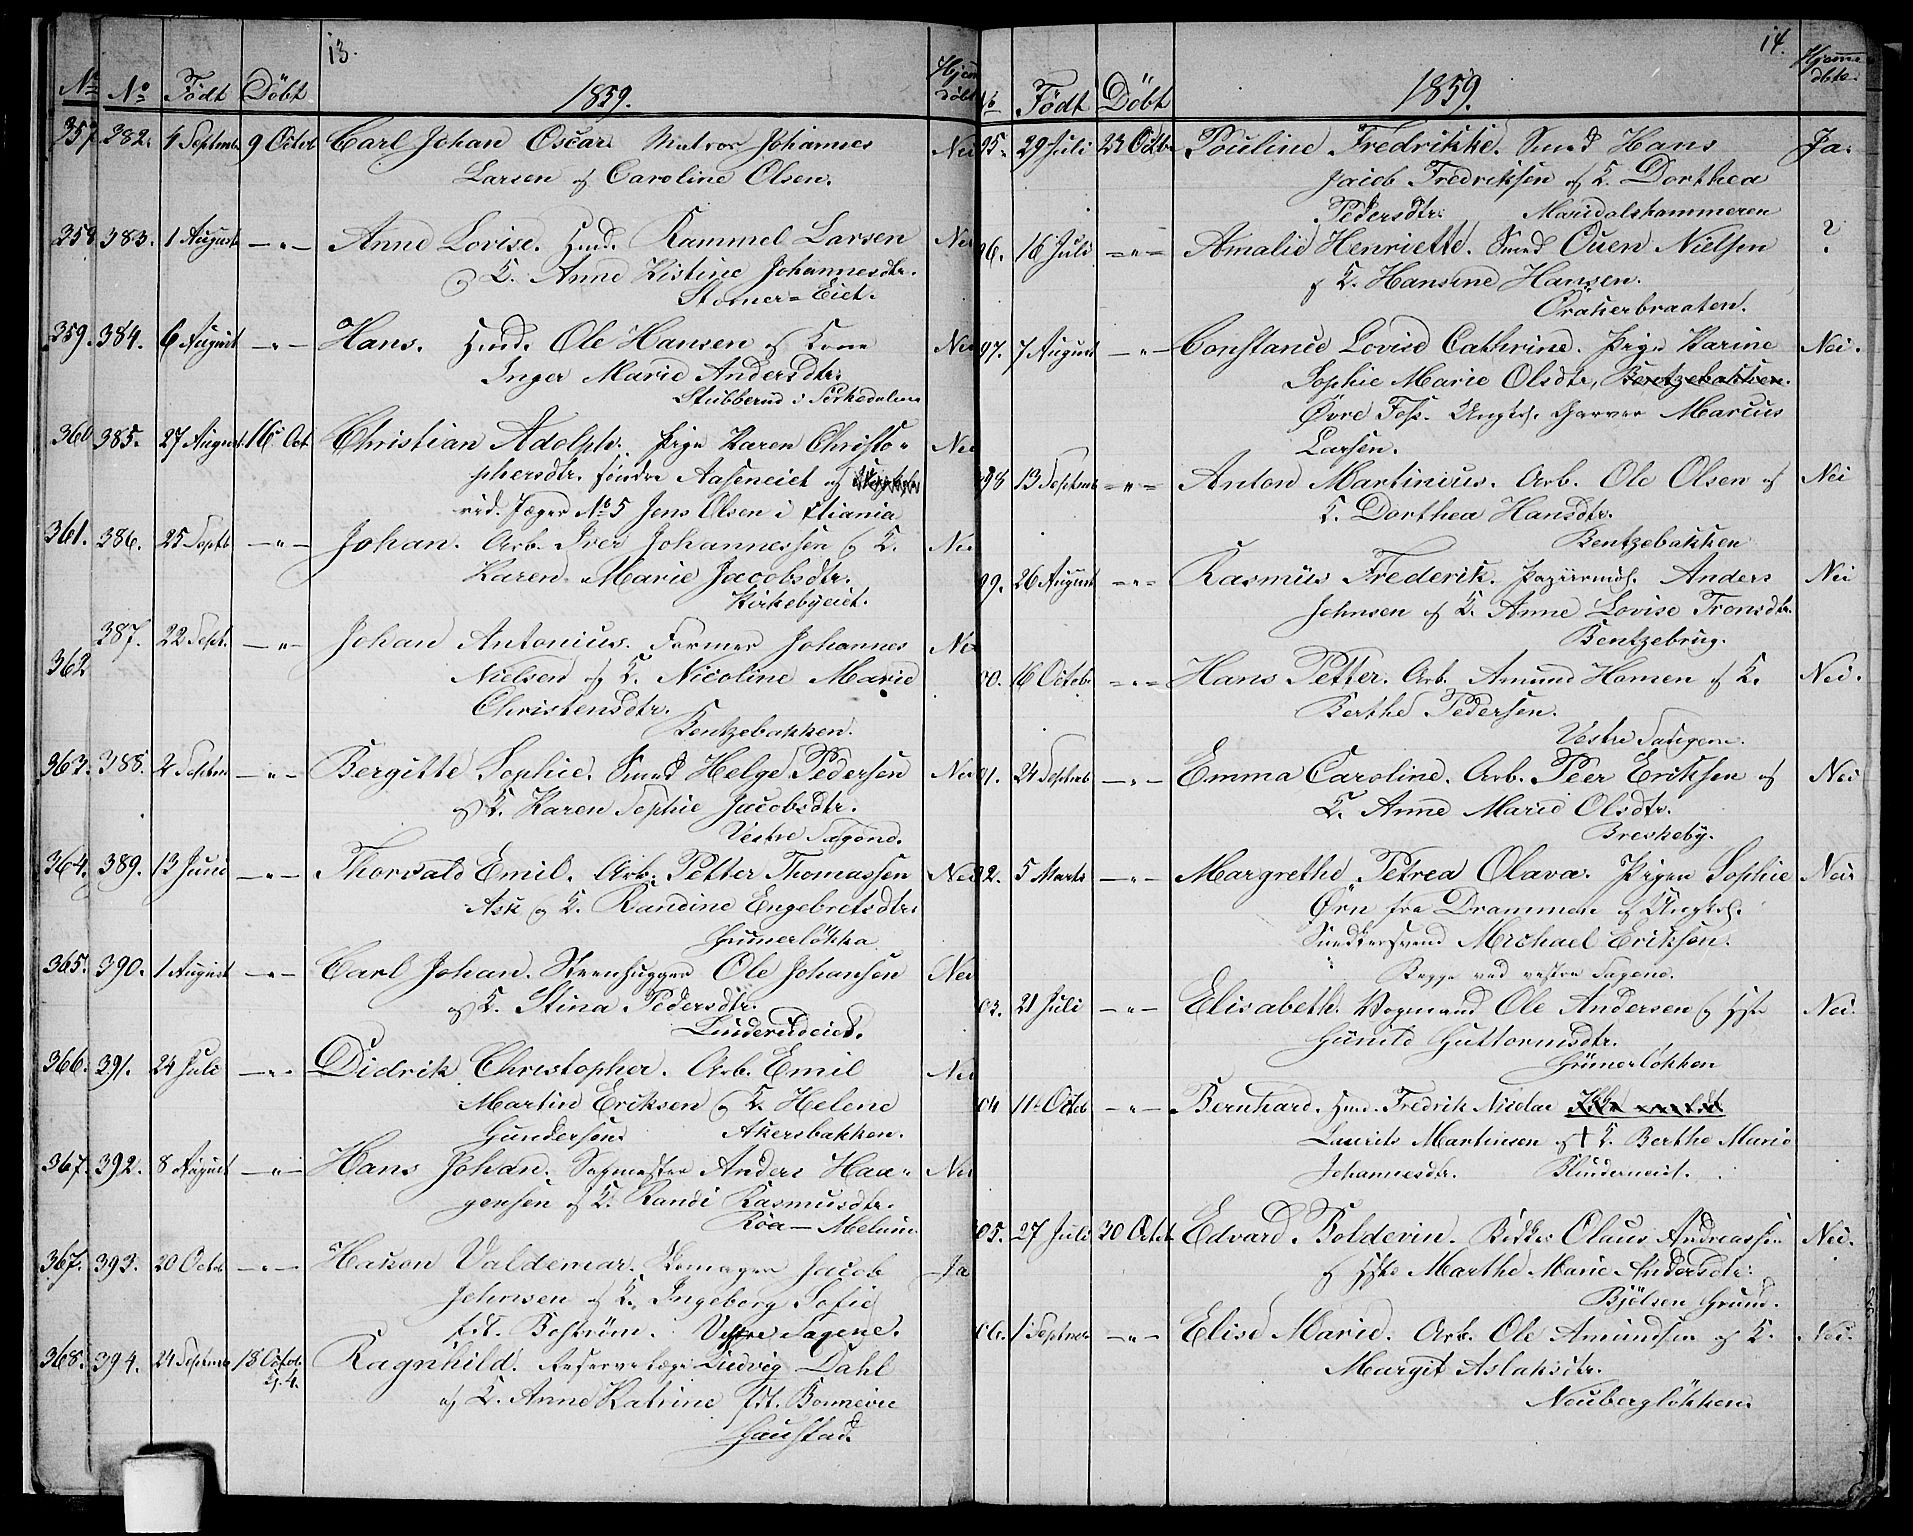 13.
No No Födt Döbt 1859. Hjem döbt
357 382. 4 Septembr 9 Octob Carl Johan Oscar. Matros Johannes Nei
Larsen og Caroline Olsen.
358 383. 1 August — " — Anne Lovise. Hmd. Rammel Larsen Nei
og K. Anne Kistine Johannesdtr.
Stomer-Eiet.
359. 384. 6 August — " — Hans. Hmd. Ole Hansen og Kone Nei
Inger Marie Andersdtr.
Stubberud i Sørkedalen
360 385. 27 August 16 Oct. Christian Adolph. Pige Karen Christo-
phersdtr. søndre Aaseneiet og Nei
rid. Jæger No 5 Jens Olsen i Xtiania
361. 386. 25 Septb — " — Johan. Arb. Iver Johannessen og K. Nei
Karen Marie Jacobsdtr.
Kirkebyeiet.
362 387. 22 Sept. — " — Johan Antonius. Former Johannes Nei
Nielsen og K. Nicoline Marie
Christensdtr.
Bentzebakken.
363. 388. 2 Septm — " — Bergitte Sophie. Smed Helge Pedersen Nei
og K. Karen Sophie Jacobsdtr.
Vestre Sagene.
364. 389. 13 Juni — " — Thorvald Emil. Arb. Petter Thomassen Nei
Ask og K. Randine Engebretsdtr.
Grünerløkka
365. 390. 1 August — " — Carl Johan. Steenhugger Ole Johansen Nei
og K. Stina Pedersdtr.
Linderudeiet.
366. 391. 24 Juli — " — Didrik Christopher. Arb. Emil Nei
Martin Eriksen og K. Helene
Gundersen. Akersbakken.
367. 392. 8 August — " — Hans Johan. Sagmester Anders Haa- Nei
gensen og K. Randi Rasmusdtr.
Röa — Melum.
367. 393. 20 Octob — " — Hakon Valdemar. Skomager Jacob Ja
Johnsen og K. Ingeborg Sofie
fdt. Boström. Vestre Sagene.
368. 394. 24 Septemb 18 Octob. Ragnhild. Reservelæge Ludvig Dahl
Kj. 4. og K. Anne Katrine fdt. Bonnevie
Gaustad.
14.
No Födt Döbt 1859. Hjemme döbte.
95. 29 Juli 23 Octbr Pouline Fredrikke. Smed Hans Ja.
Jacob Fredriksen og K. Dorthea
Pedersdtr. Maridalshammeren
96. 16 Juli — " — Amalie Henriette. Smed Ouen Nielsen ?
og K. Hansine Hansen.
Oräkerbraaten.
97. 7 August — " — Constance Lovise Cathrine. Pige Karine Nei.
Sophie Marie Olsdtr, Bentzebakken.
Övre Foss. Ungksl. Garver Marcus
Larsen.
98 13 Septmb — " — Anton Martinius. Arb. Ole Olsen og Nei
K. Dorthea Hansdtr.
Bentzebakken
99. 26 August — " — Rasmus Frederik. Papiirmøl. Anders Nei
Johnsen og K. Anne Lovise Tronsdtr.
Bentzebrug.
00. 16 Octob — " — Hans Petter. Arb. Amund Homen og K. Nei.
Berthe Pedersen.
Vestre Saugene.
01. 24 Septemb — " — Emma Caroline. Arb. Peer Eriksen og Nei
K. Anne Marie Olsdtr.
Breskeby.
02. 5 Marts — " — Margrethe Petrea Olava. Pigen Sophie Nei
Örn fra Drammen og Ungksl.
Snedkersvend Michael Eriksen.
Begge ved vestre Sagene.
03. 21 Juli — " — Elisabeth. Vogmand Ole Andersen og Hst Nei.
Gunild Guttormsdtr.
Grünerløkken
04 11 Octob — " — Bernhard. Hmd. Fredrik Nicolai
Laurits Martinsen og K. Berthe Marie
Johannesdtr. Blinderneiet.
05. 27 Juli 30 Octob Edvard Boldevin. Olaus Andreassen Nei.
og Hst Marthe Marie Andersdtr.
Bjölsen Grund.
06. 1 Septmb — " — Elise Marie. Arb. Ole Amundsen og K. Nei.
Margit Aslaksdtr.
Neubergløkken.